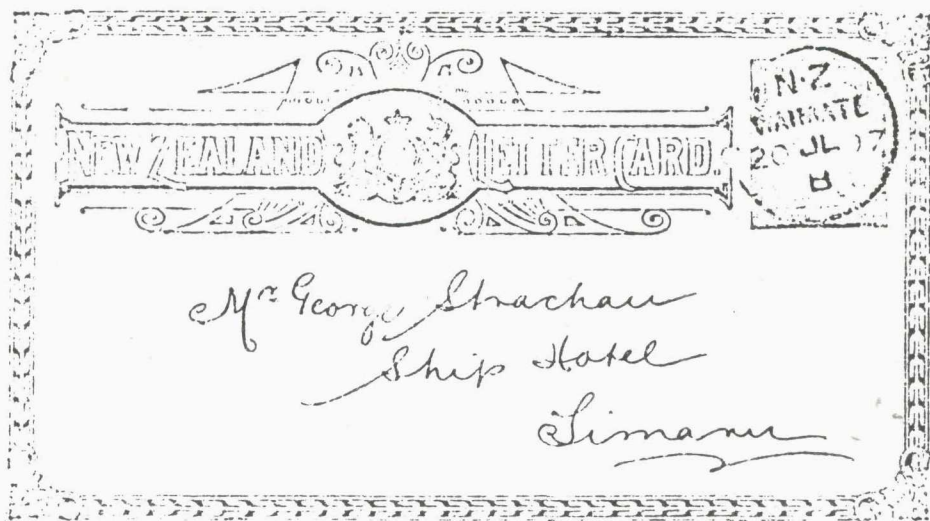 NEW ZEALAND LETTER CARD.
N·Z
WAIMATE
20 JL 97
B
Mr George Strachan
Ship Hotel
Timaru